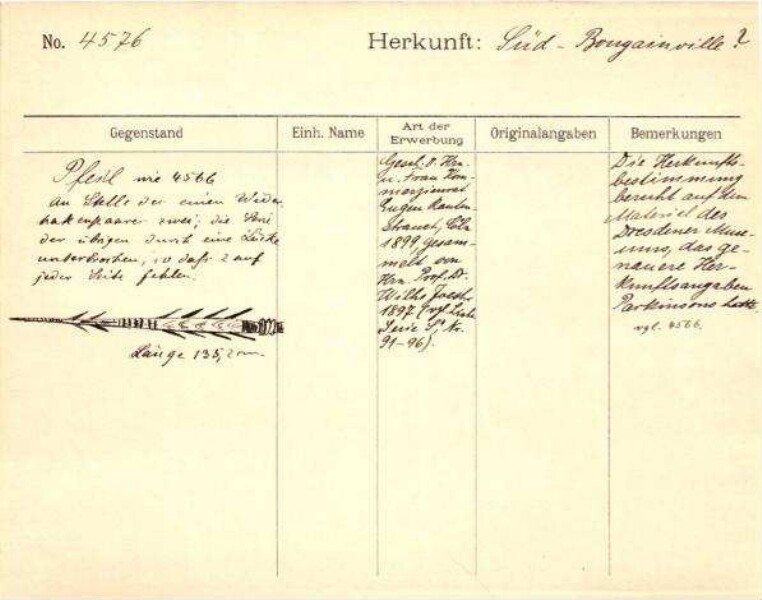 No. 4576 Herkunft: Süd-Bougainville?
Gegenstand
Einh. Name
Art der
Erwerbung
Originalangaben
Bemerkungen
Pfeil wie 4566
An Stelle der einen Wider-
hakenpaare zwei; die Serie
der übrigen durch eine Lücke
unterbrochen, so daß 2 auf
jeder Seite fehlen.
Länge 135,2 cm.
Gesch. v. Hrn.
u. Frau Kom-
merzienrat
Eugen Rauten-
strauch, Cöln
1899, gesam-
melt von
Hrn. Prof. Dr.
Wilh. Joest
1897 (vgl. Liste
Serie S, Nr.
91-96).
Die Herkunfts-
bestimmung
beruht auf dem
Material des
Dresdener Muse-
ums, das ge-
nauere Her-
kunftsangaben
Parkinsons hatte.
vgl. 4566.